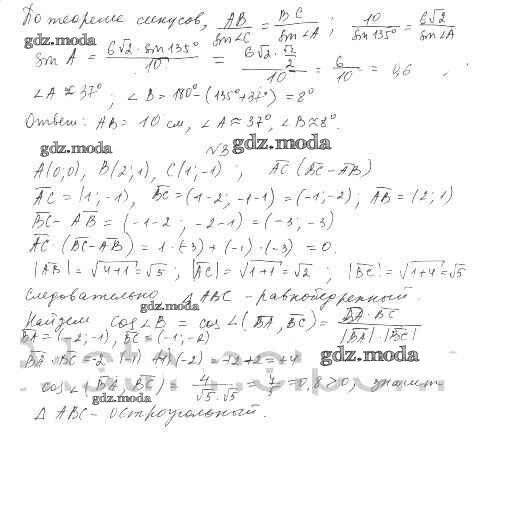 По теореме синусов, AB/sin∠C = BC/sin∠A ; 10/sin 135° = 6√2/sin∠A
gdz.moda
sin A = 6√2 · sin 135°/10 = 6√2 · √2/2/10 = 6/10 = 0,6
∠A ≈ 37° ; ∠B = 180° - (135° + 37°) = 8°
Ответ: AB = 10 см, ∠A ≈ 37°, ∠B ≈ 8°.
gdz.moda №3 gdz.moda
A(0;0), B(2;1), C(1;-1) ; AC (BC - AB)
AC = (1; -1), BC = (1-2; -1-1) = (-1; -2) ; AB = (2; 1)
BC - AB = (-1-2 ; -2-1) = (-3; -3)
AC · (BC - AB) = 1 · (-3) + (-1) · (-3) = 0.
|AB| = √4+1 = √5 ; |AC| = √1+1 = √2 ; |BC| = √1+4 = √5
Следовательно, Δ ABC - равнобедренный.
gdz.moda
Найдем cos∠B = cos∠(BA, BC) = BA · BC/|BA| · |BC|
BA = (-2; -1), BC = (-1; -2)
gdz.moda
cos∠(BA, BC) = 4/√5 · √5 = 4/5 = 0,8 > 0, значит
gdz.moda
Δ ABC - остроугольный.